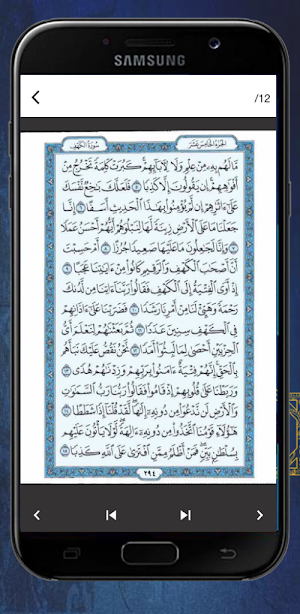 SAMSUNG
/12
سورة الكهف الجزء الخامس عشر
مَّا لَهُم بِهِۦ مِنْ عِلْمٍ وَلَا لِـَٔابَآئِهِمْ كَبُرَتْ كَلِمَةً تَخْرُجُ مِنْ
أَفْوَٰهِهِمْ إِن يَقُولُونَ إِلَّا كَذِبًا ٥ فَلَعَلَّكَ بَٰخِعٌ نَّفْسَكَ
عَلَىٰٓ ءَاثَٰرِهِمْ إِن لَّمْ يُؤْمِنُوا۟ بِهَٰذَا ٱلْحَدِيثِ أَسَفًا ٦ إِنَّا
جَعَلْنَا مَا عَلَى ٱلْأَرْضِ زِينَةً لَّهَا لِنَبْلُوَهُمْ أَيُّهُمْ أَحْسَنُ عَمَلًا
٧ وَإِنَّا لَجَٰعِلُونَ مَا عَلَيْهَا صَعِيدًا جُرُزًا ٨ أَمْ حَسِبْتَ
أَنَّ أَصْحَٰبَ ٱلْكَهْفِ وَٱلرَّقِيمِ كَانُوا۟ مِنْ ءَايَٰتِنَا عَجَبًا ٩
إِذْ أَوَى ٱلْفِتْيَةُ إِلَى ٱلْكَهْفِ فَقَالُوا۟ رَبَّنَآ ءَاتِنَا مِن لَّدُنكَ
رَحْمَةً وَهَيِّئْ لَنَا مِنْ أَمْرِنَا رَشَدًا ١٠ فَضَرَبْنَا عَلَىٰٓ ءَاذَانِهِمْ
فِى ٱلْكَهْفِ سِنِينَ عَدَدًا ١١ ثُمَّ بَعَثْنَٰهُمْ لِنَعْلَمَ أَىُّ
ٱلْحِزْبَيْنِ أَحْصَىٰ لِمَا لَبِثُوٓا۟ أَمَدًا ١٢ نَّحْنُ نَقُصُّ عَلَيْكَ نَبَأَهُم
بِٱلْحَقِّ إِنَّهُمْ فِتْيَةٌ ءَامَنُوا۟ بِرَبِّهِمْ وَزِدْنَٰهُمْ هُدًى ١٣
وَرَبَطْنَا عَلَىٰ قُلُوبِهِمْ إِذْ قَامُوا۟ فَقَالُوا۟ رَبُّنَا رَبُّ ٱلسَّمَٰوَٰتِ
وَٱلْأَرْضِ لَن نَّدْعُوَا۟ مِن دُونِهِۦٓ إِلَٰهًا لَّقَدْ قُلْنَآ إِذًا شَطَطًا ١٤
هَٰٓؤُلَآءِ قَوْمُنَا ٱتَّخَذُوا۟ مِن دُونِهِۦٓ ءَالِهَةً لَّوْلَا يَأْتُونَ عَلَيْهِم
بِسُلْطَٰنٍۭ بَيِّنٍ فَمَنْ أَظْلَمُ مِمَّنِ ٱفْتَرَىٰ عَلَى ٱللَّهِ كَذِبًا ١٥
٢٩٤